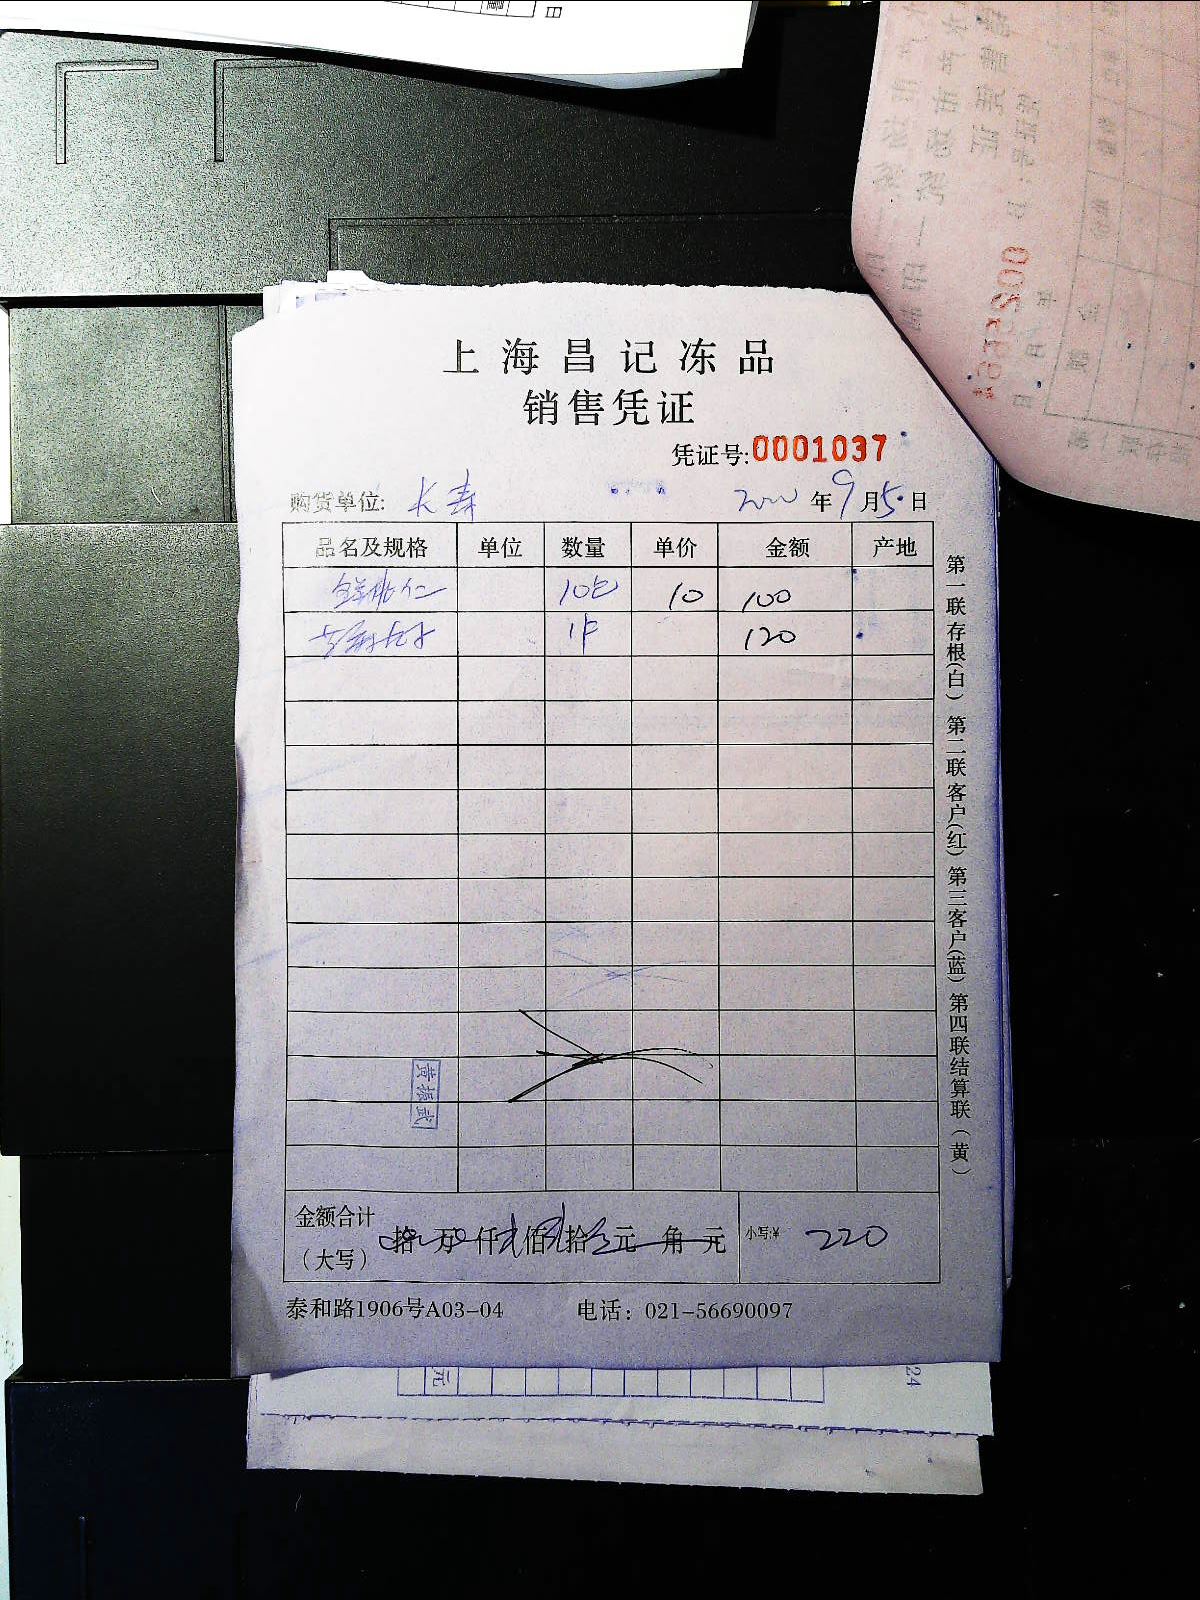 上海昌记冻品
销售凭证
凭证号:0001037
购货单位: 长寿 年9月5日
品名及规格 单位 数量 单价 金额 产地
10包 10 100
1件 120
黄振武
金额合计
(大写) 拾 万 仟 贰 佰 贰 拾 元 角 元 小写:¥ 220
泰和路1906号A03-04 电话: 021-56690097
第一联存根(白) 第二联客户(红) 第三客户(蓝) 第四联结算联(黄)
元
24